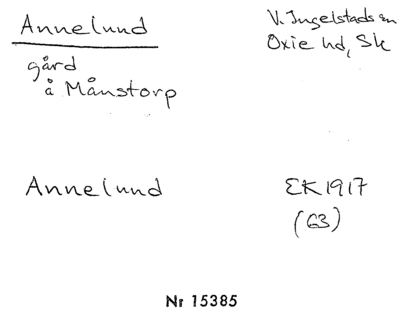 Annelund
V. Ingelstads sn
Oxie hd, Sk
gård
å Månstorp
Annelund
EK 1917
(63)
Nr 15385